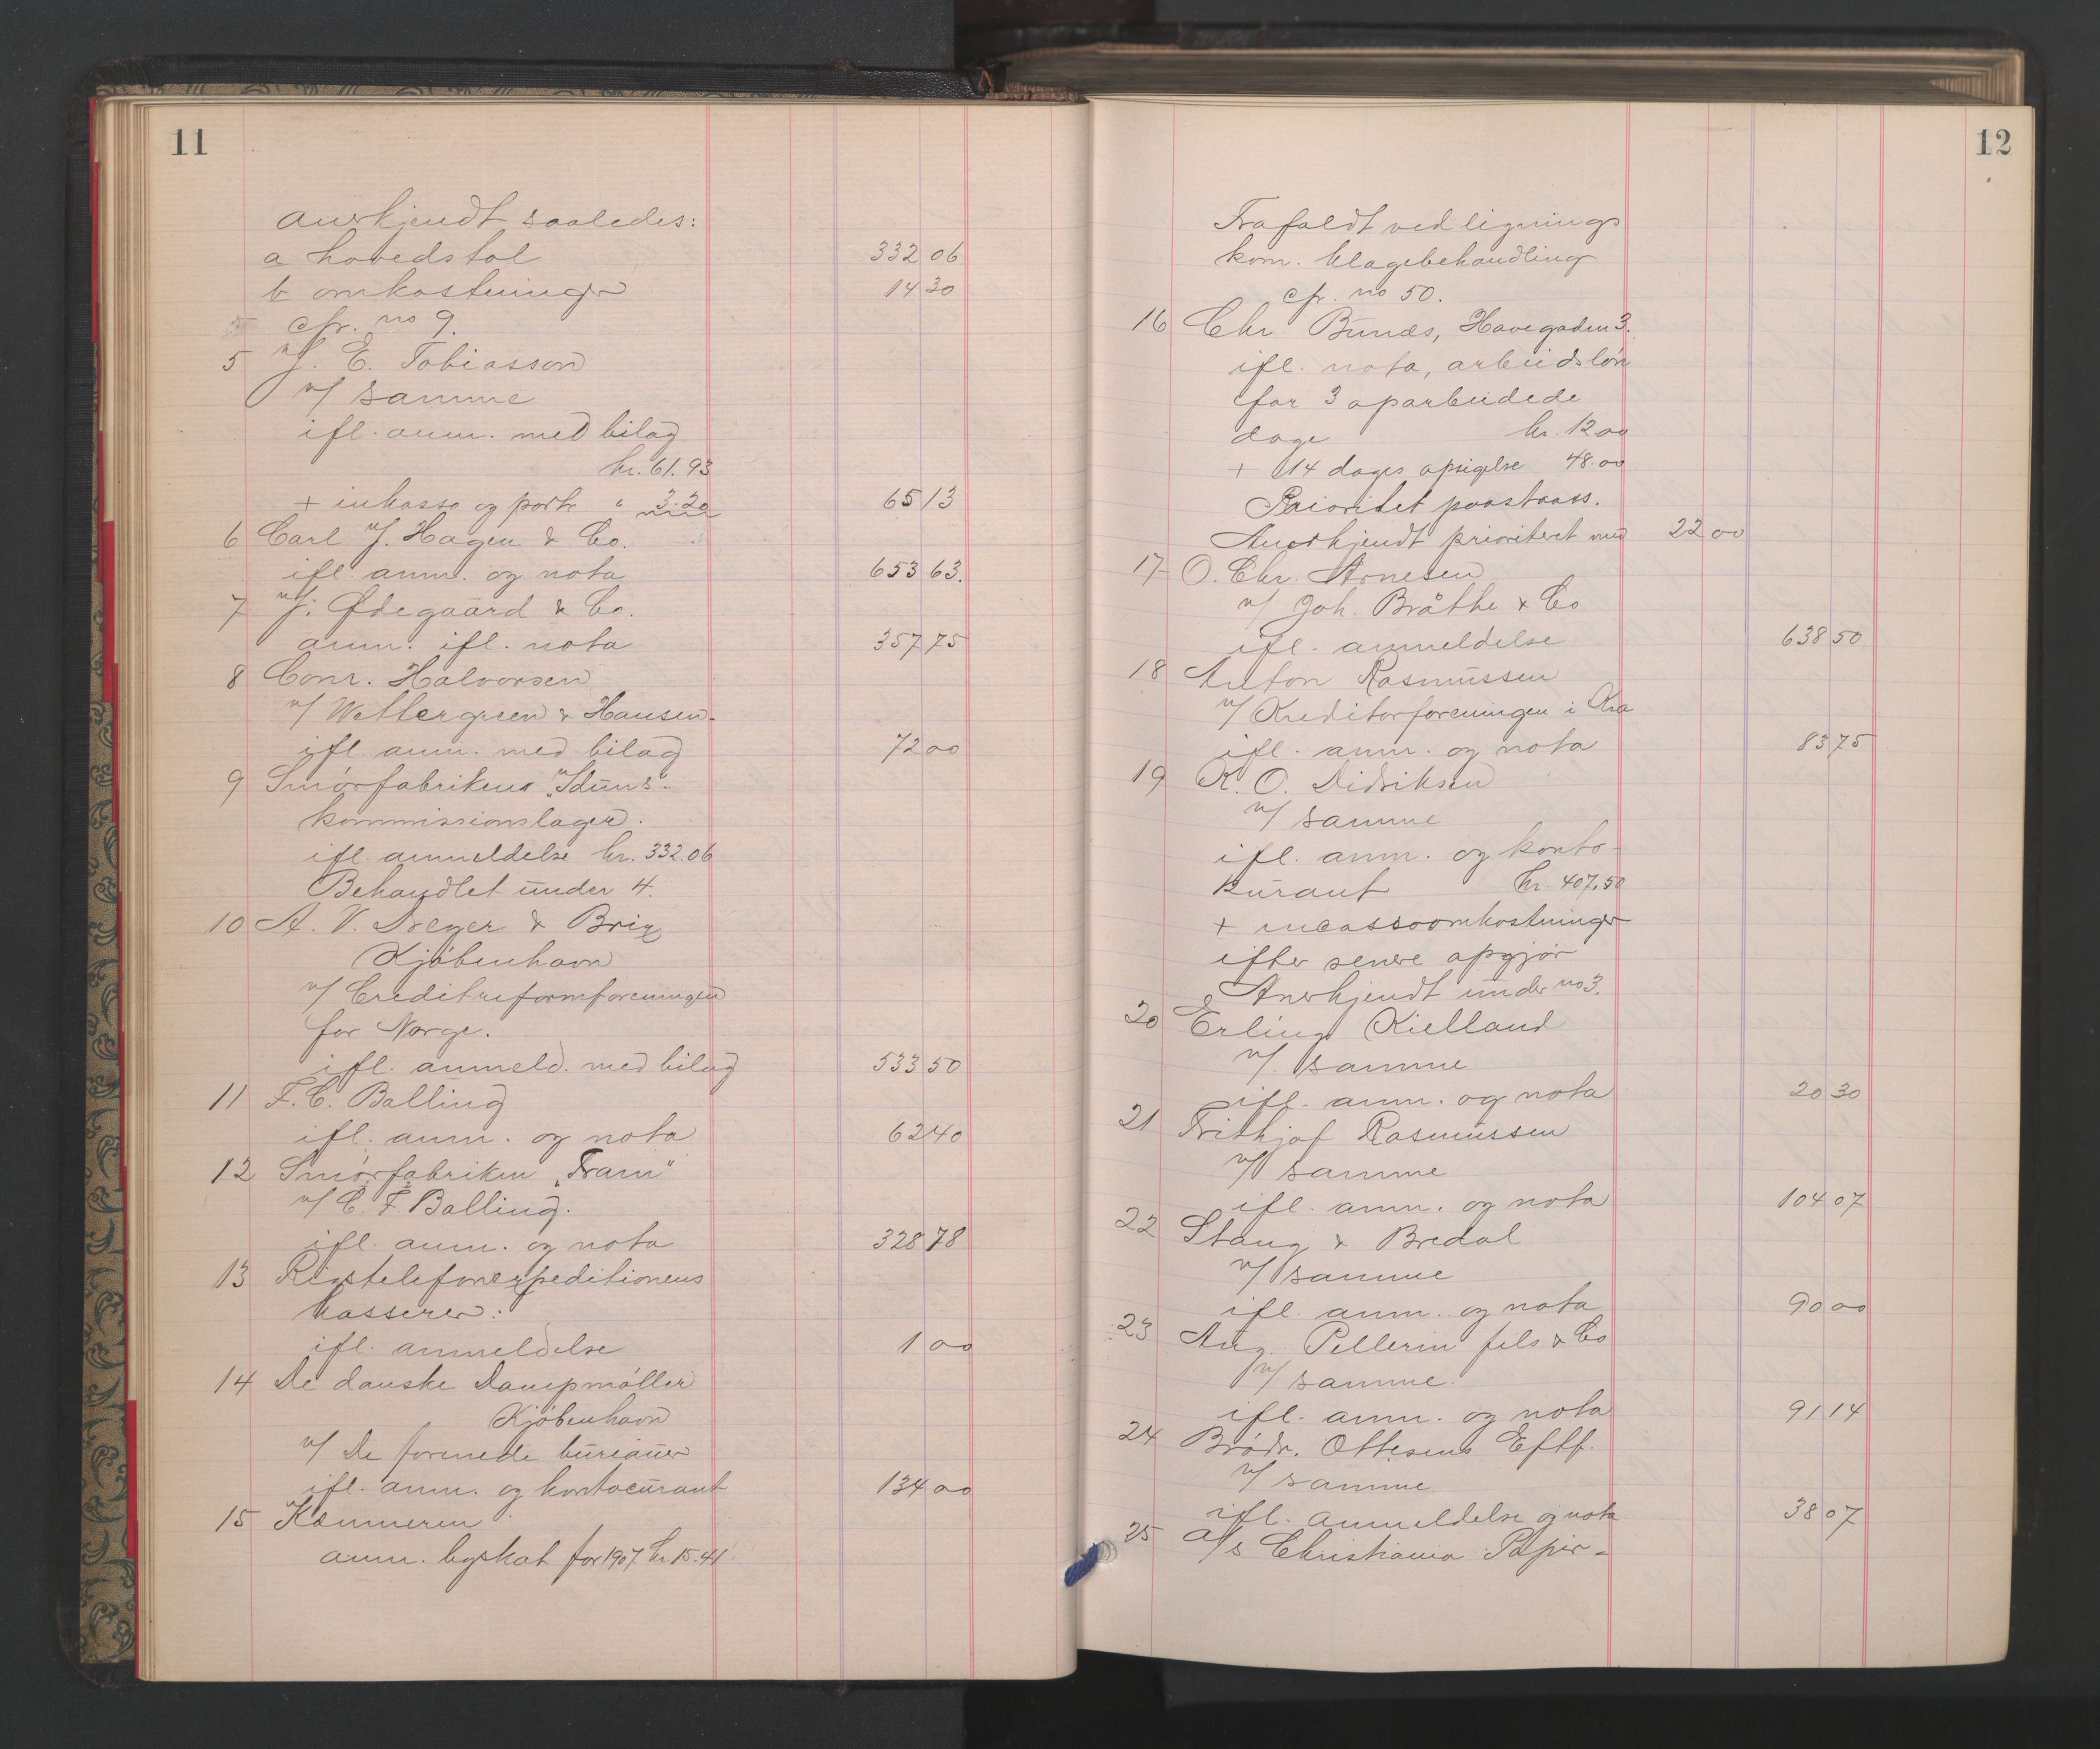 11
Anerkjendt saaledes:
a hovedstol 332 06
b omkostninger 14 30
cfr. no 9.
5 J. E. Tobiasson
v/ samme
ifl. anm. med bilag
kr. 61.93
+ inkasso og porto " 3.20 65 13
6 Carl J. Hagen & Co.
ifl. anm. og nota 653 63.
7 J. Ødegaard & Co.
anm. ifl. nota 357 75
8 Conr. Halvorsen
v/ Wettergreen & Hansen.
ifl. anm. med bilag 72 00
9 Smörfabriken "Iduns"
kommissionslager.
ifl. anmeldelse kr. 332.06
Behandlet under 4.
10 A. V. Dreyer & Brix
Kjöbenhavn
v/ Creditreformforeningen
for Norge.
ifl. anmeld. med bilag 533 50
11 F. C. Balling
ifl. anm. og nota 62 40
12 Smörfabriken "Fram"
v/ C. F. Balling.
ifl. anm. og nota 328 78
13 Rigstelefonexpeditionens
kasserer:
ifl. anmeldelse 1 00
14 De danske Dampmöller
Kjöbenhavn
v/ De forenede bureauer
ifl. anm. og kontocurant 134 00
15 Kæmneren
anm. byskat for 1907 kr. 15.41
12
Frafaldt ved lignings
kom. klagebehandling
cfr. no 50.
16 Chr. Bunæs, Havegaden 3.
ifl. nota, arbeidslön
for 3 oparbeidede
dage kr. 12.00
+ 14 dages opsigelse 48.00
Prioritet paastaaes.
Anerkjendt prioriteret med 22 00
17 O. Chr. Arnesen
v/ Joh. Bråthe & Co
ifl. anmeldelse 638 50
18 Anton Rasmussen
v/ Kreditorforeningen i Kra
ifl. anm. og nota 83 75
19 K. O. Didriksen
v/ samme
ifl. anm. og konto-
kurant kr. 407.50
+ incassoomkostninger
efter senere opgjör
Anerkjendt under no 3.
20 Erling Kielland
v/ samme
ifl. anm. og nota 20 30
21 Frithjof Rasmussen
v/ samme
ifl. anm. og nota 104 07
22 Stang & Bredal
v/ samme
ifl. anm. og nota 90 00
23 Aug. Pellerin fils & Co
v/ samme.
ifl. anm. og nota 91 14
24 Brödr. Ottesens Eftf.
v/ samme
ifl. anmeldelse og nota 38 07
25 A/S Christiania Papir-